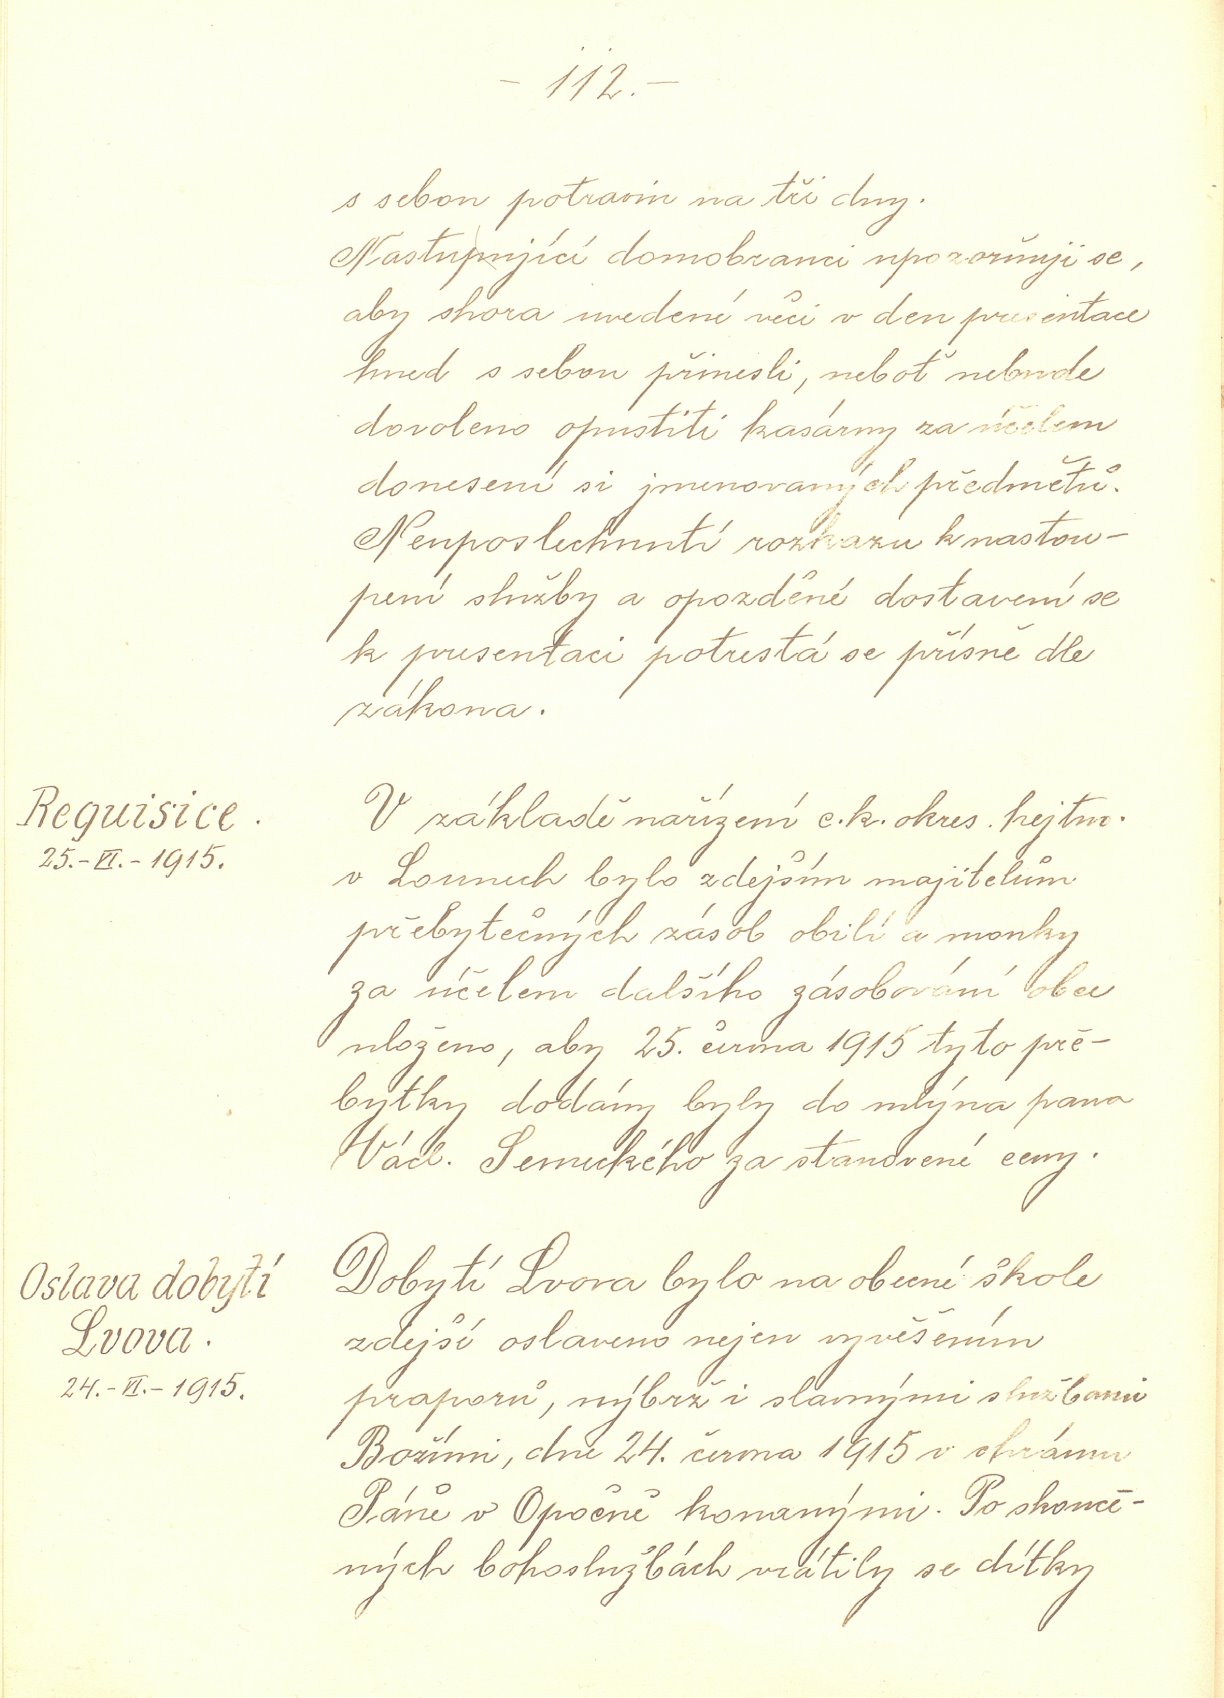 - 112. -
s sebou potravin na tři dny.
Nastupující domobranci upozorňují se,
aby shora uvedené věci v den presentace
hned s sebou přinesli, neboť nebude
dovoleno opustiti kasárny za účelem
donesení si jmenovaných předmětů.
Neuposlechnutí rozkazu k nastou-
pení služby a opozděné dostavení se
k presentaci potrestá se přísně dle
zákona.
Requisice.
25.-VI.-1915.
V základě nařízení c.k. okres. hejtm.
v Lounech bylo zdejším majitelům
přebytečných zásob obilí a mouky
za účelem dalšího zásobování obce
uloženo, aby 25. června 1915 tyto pře-
bytky dodány byly do mlýna pana
Václ. Semeckého za stanovené ceny.
Oslava dobytí
Lvova.
24.-VI.-1915.
Dobytí Lvova bylo na obecné škole
zdejší oslaveno nejen vyvěšením
praporů, nýbrž i slavnými službami
Božími, dne 24. června 1915 v chrámu
Páně v Opočně konanými. Po skonče-
ných bohoslužbách vrátily se dítky